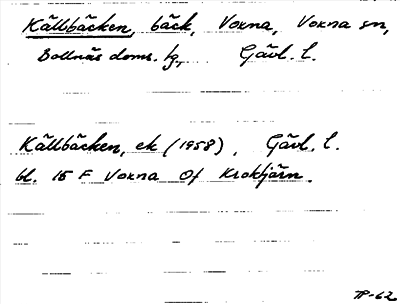 Källbäcken, bäck, Voxna, Voxna sn,
Bollnäs doms. tg, Gävl. l.
Källbäcken, ek (1958), Gävl. l.
bl. 15 F Voxna Of Kroktjärn.
TP-62